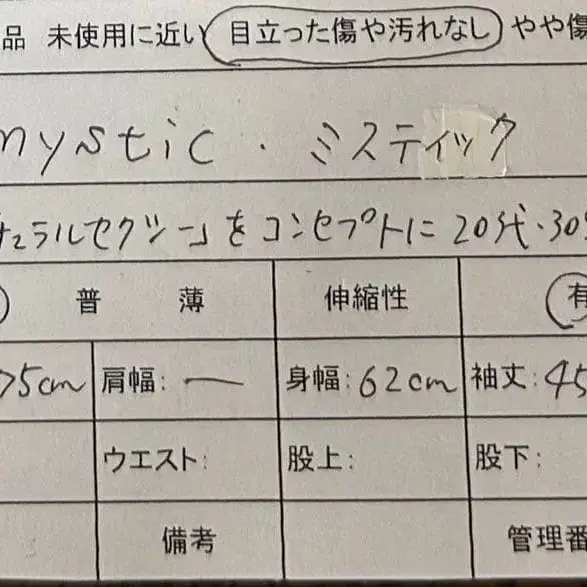 品 未使用に近い 目立った傷や汚れなし やや傷
mystic・ミスティック
ュラルセクシー」を コンセプトに 20代・30
普 薄 伸縮性 有
75cm 肩幅: ー 身幅: 62cm 袖丈: 45
ウエスト: 股上: 股下:
備考 管理番